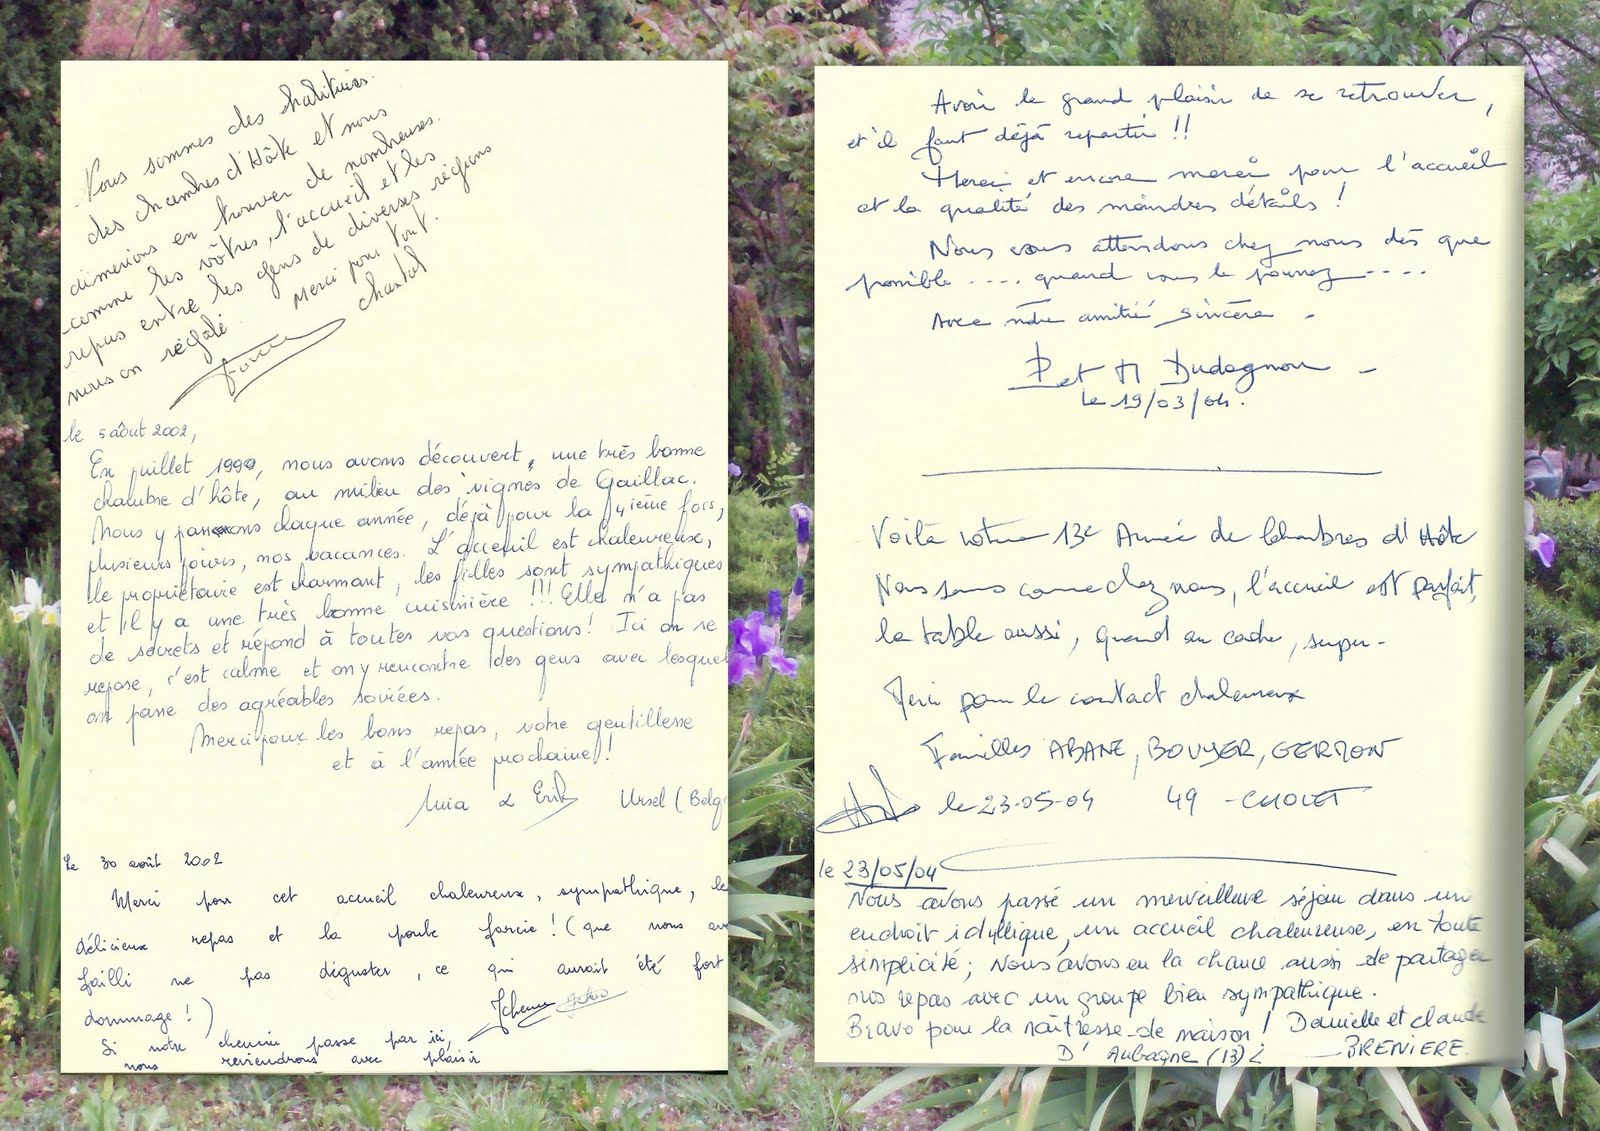 Nous sommes des habitués
des chambres d'Hôte et nous
aimerions en trouver de nombreuses
comme les vôtres, l'accueil et les
repas entre les gens de diverses régions
nous on régalé. Merci pour tout.
chantal
le 5 août 2002,
En juillet 1999, nous avons découvert, une très bonne
chambre d'hôte, au milieu des vignes de Gaillac.
Nous y passons chaque année, déjà pour la 4ième fois,
plusieurs jours, nos vacances. L'acceuil est chaleureux,
le propriétaire est charmant, les filles sont sympathiques
et il y a une très bonne cuisinière !!! Elle n'a pas
de secrets et répond à toutes vos questions! Ici on se
repose, c'est calme et on y rencontre des gens avec lesquel
on passe des agréables soirées.
Merci pour les bons repas, votre gentillesse
et à l'année prochaine!
& Erik Ursel (Belg
Le 30 août 2002
Merci pour cet accueil chaleureux, sympathique, le
délicieux repas et la poule farcie! (que nous av
failli ne pas déguster, ce qui aurait été fort
dommage!)
Si notre chemin passe par ici,
nous reviendrons avec plaisir
Avoir le grand plaisir de se retrouver,
et il faut déjà repartir !!
Merci et encore merci pour l'accueil
et la qualité des moindres détails!
Nous vous attendons chez nous dès que
possible .... quand vous le pourrez ....
Avec notre amitié sincère .
P et M Dudognon
le 19/03/04.
Voilà notre 13e Année de Chambres d'Hôte
Nous sommes comme chez nous, l'accueil est parfait,
la table aussi, quand au cadre, super.
Merci pour le contact chaleureux
Familles ABANE, BOUYER, GERMON
le 23-05-04 49 - CHOLET
le 23/05/04
Nous avons passé un merveilleux séjour dans un
endroit idyllique, un accueil chaleureuse, en toute
simplicité; Nous avons eu la chance aussi de partager
nos repas avec un groupe bien sympathique.
Bravo pour la maîtresse de maison! Danielle et claude
D'Aubagne (13) BRENIERE.